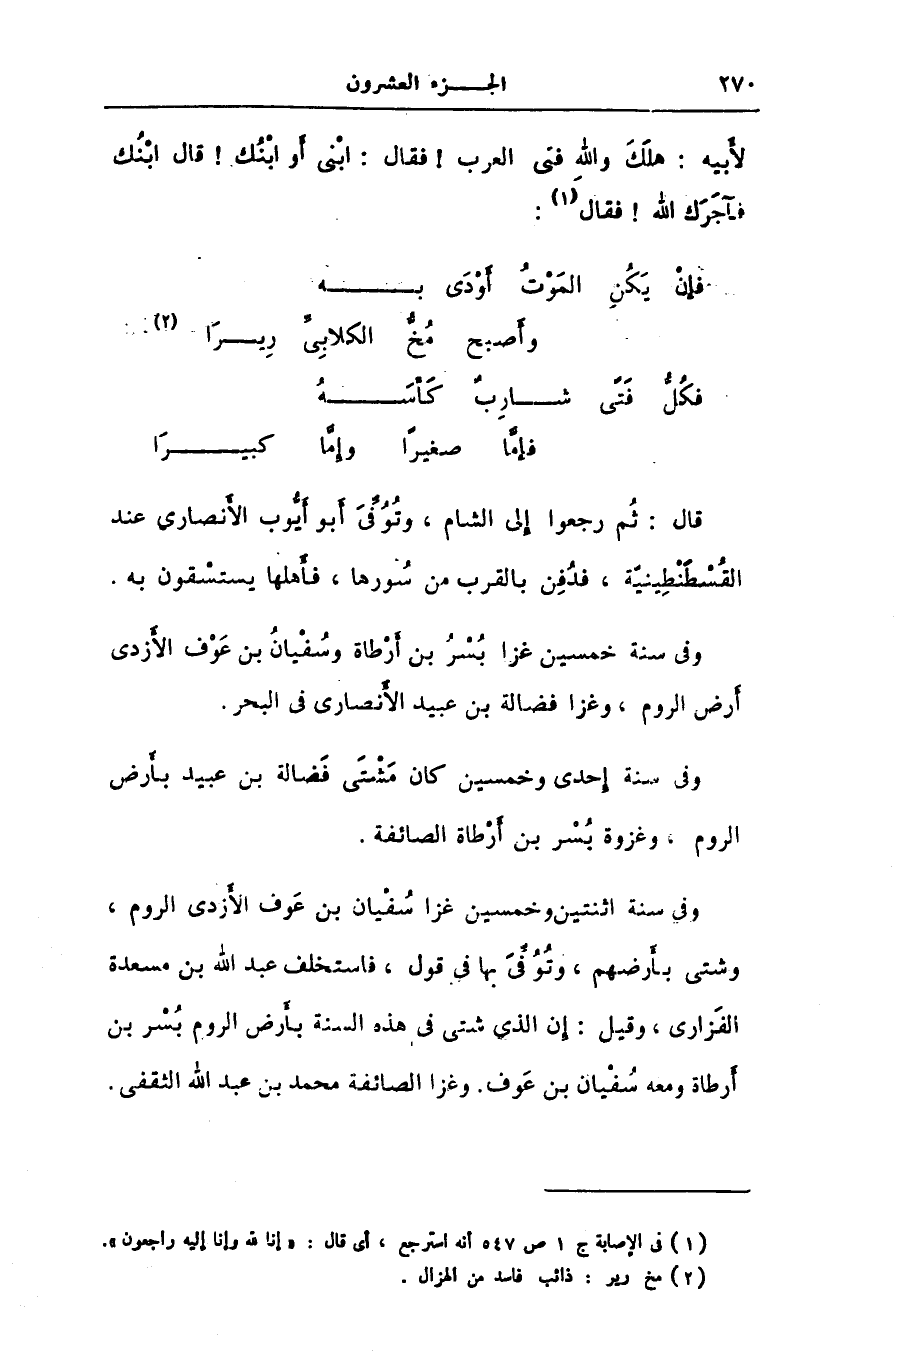 ٢٧٠ الجــزء العشرون
لأَبيه : هلَكَ واللهِ فتى العرب ! فقال : ابْنى أَو ابْنُك ! قال ابْنُك
فآجَرَك الله ! فقال(١) :
فإنْ يَكُنِ المَوْتُ أَوْدَى بـــــه
وأَصبح مُخُّ الكلابىِّ رِيـــرَا (٢)
فكُلُّ فَتًى شـــارِبٌ كَأْسَـــهُ
فإمَّا صغيرًا وإمَّا كبيـــرَا
قال : ثُم رجعوا إلى الشام ، وتُوُفِّىَ أَبو أَيُّوب الأَنصارى عند
القُسْطَنْطِينيّة ، فدُفِن بالقرب من سُورها ، فأَهلها يستسْقون به .
وفى سنة خمسين غزا بُسْرُ بن أَرْطاة وسُفْيانُ بن عَوْف الأَزدى
أَرض الروم ، وغزا فضالة بن عبيد الأَنصارى فى البحر .
وفى سنة إحدى وخمسين كان مَشْتَى فَضالة بن عبيد بأَرض
الروم ، وغزوة بُسْر بن أَرْطاة الصائفة .
وفى سنة اثنتين وخمسين غزا سُفْيان بن عَوف الأَزدى الروم ،
وشتى بأَرضهم ، وتُوُفِّىَ بها فى قول ، فاستخلف عبد الله بن مسعدة
الفَزارى ، وقيل : إن الذي شتى فى هذه السنة بأَرض الروم بُسْر بن
أَرطاة ومعه سُفْيان بن عَوف. وغزا الصائفة محمد بن عبد الله الثقفى .
(١) فى الإصابة ج ١ ص ٥٤٧ أنه استرجع ، أى قال : « إنا لله وإنا إليه راجعون ».
(٢) مخ رير : ذائب فاسد من الهزال .